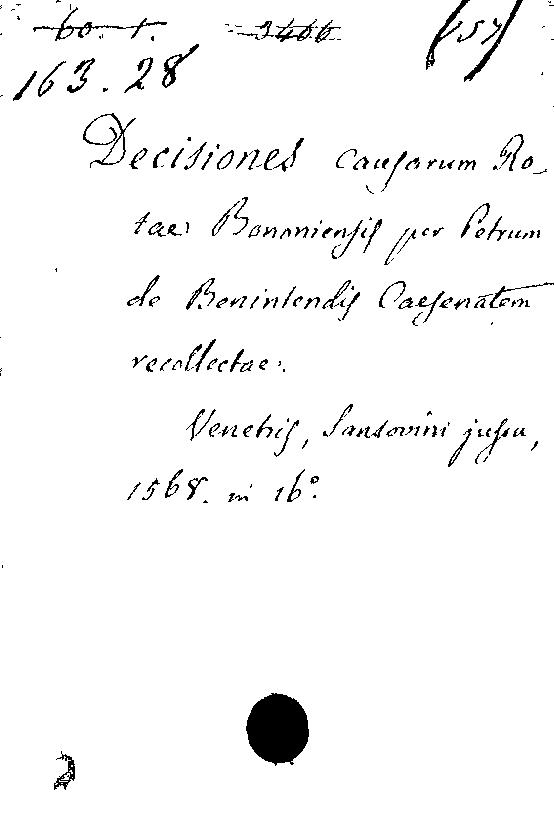 60. 1. 3466 (157)
163. 28
Decisiones causarum Ro-
tae Bononiensis per Petrum
de Benintendis Caesenatem
recollectae.
Venetiis, Sansovini jussu,
1568. in 16°.